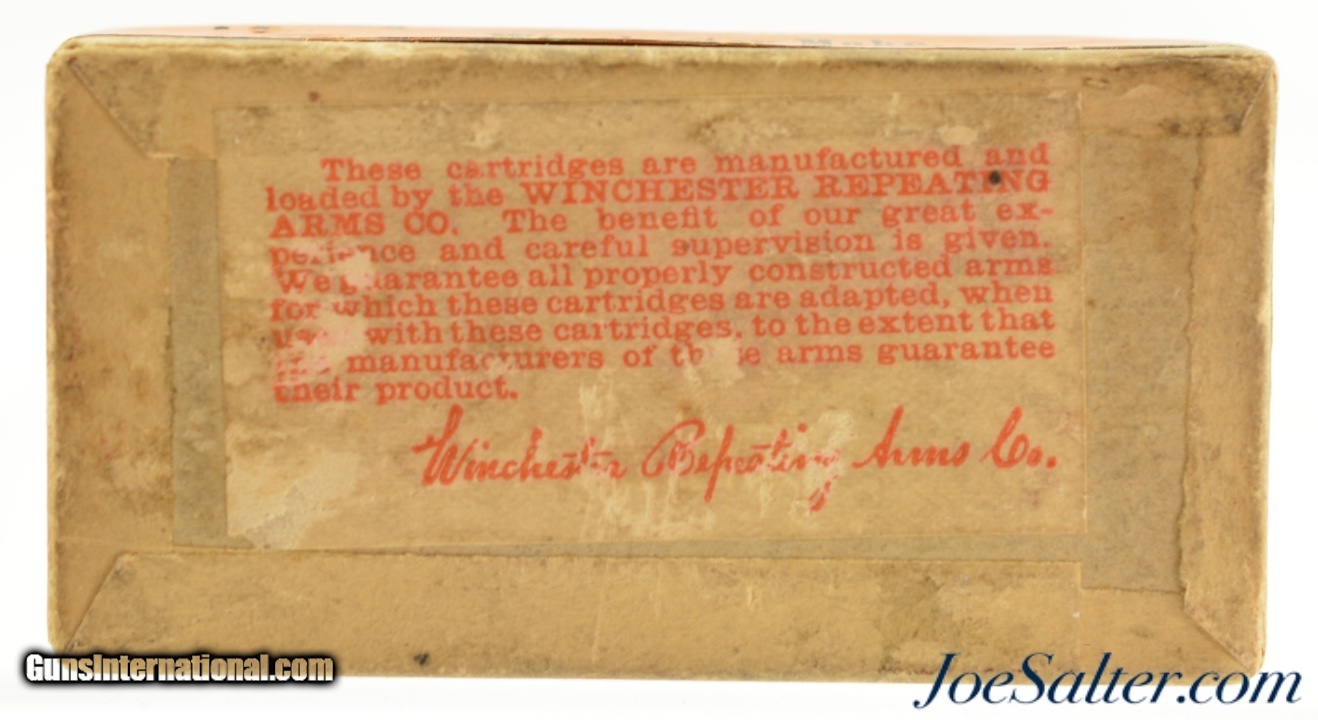 These cartridges are manufactured and
loaded by the WINCHESTER REPEATING
ARMS CO. The benefit of our great ex-
perience and careful supervision is given.
We guarantee all properly constructed arms
for which these cartridges are adapted, when
used with these cartridges, to the extent that
manufacturers of these arms guarantee
their product.
Winchester Repeating Arms Co.
GunsInternational.com
JoeSalter.com